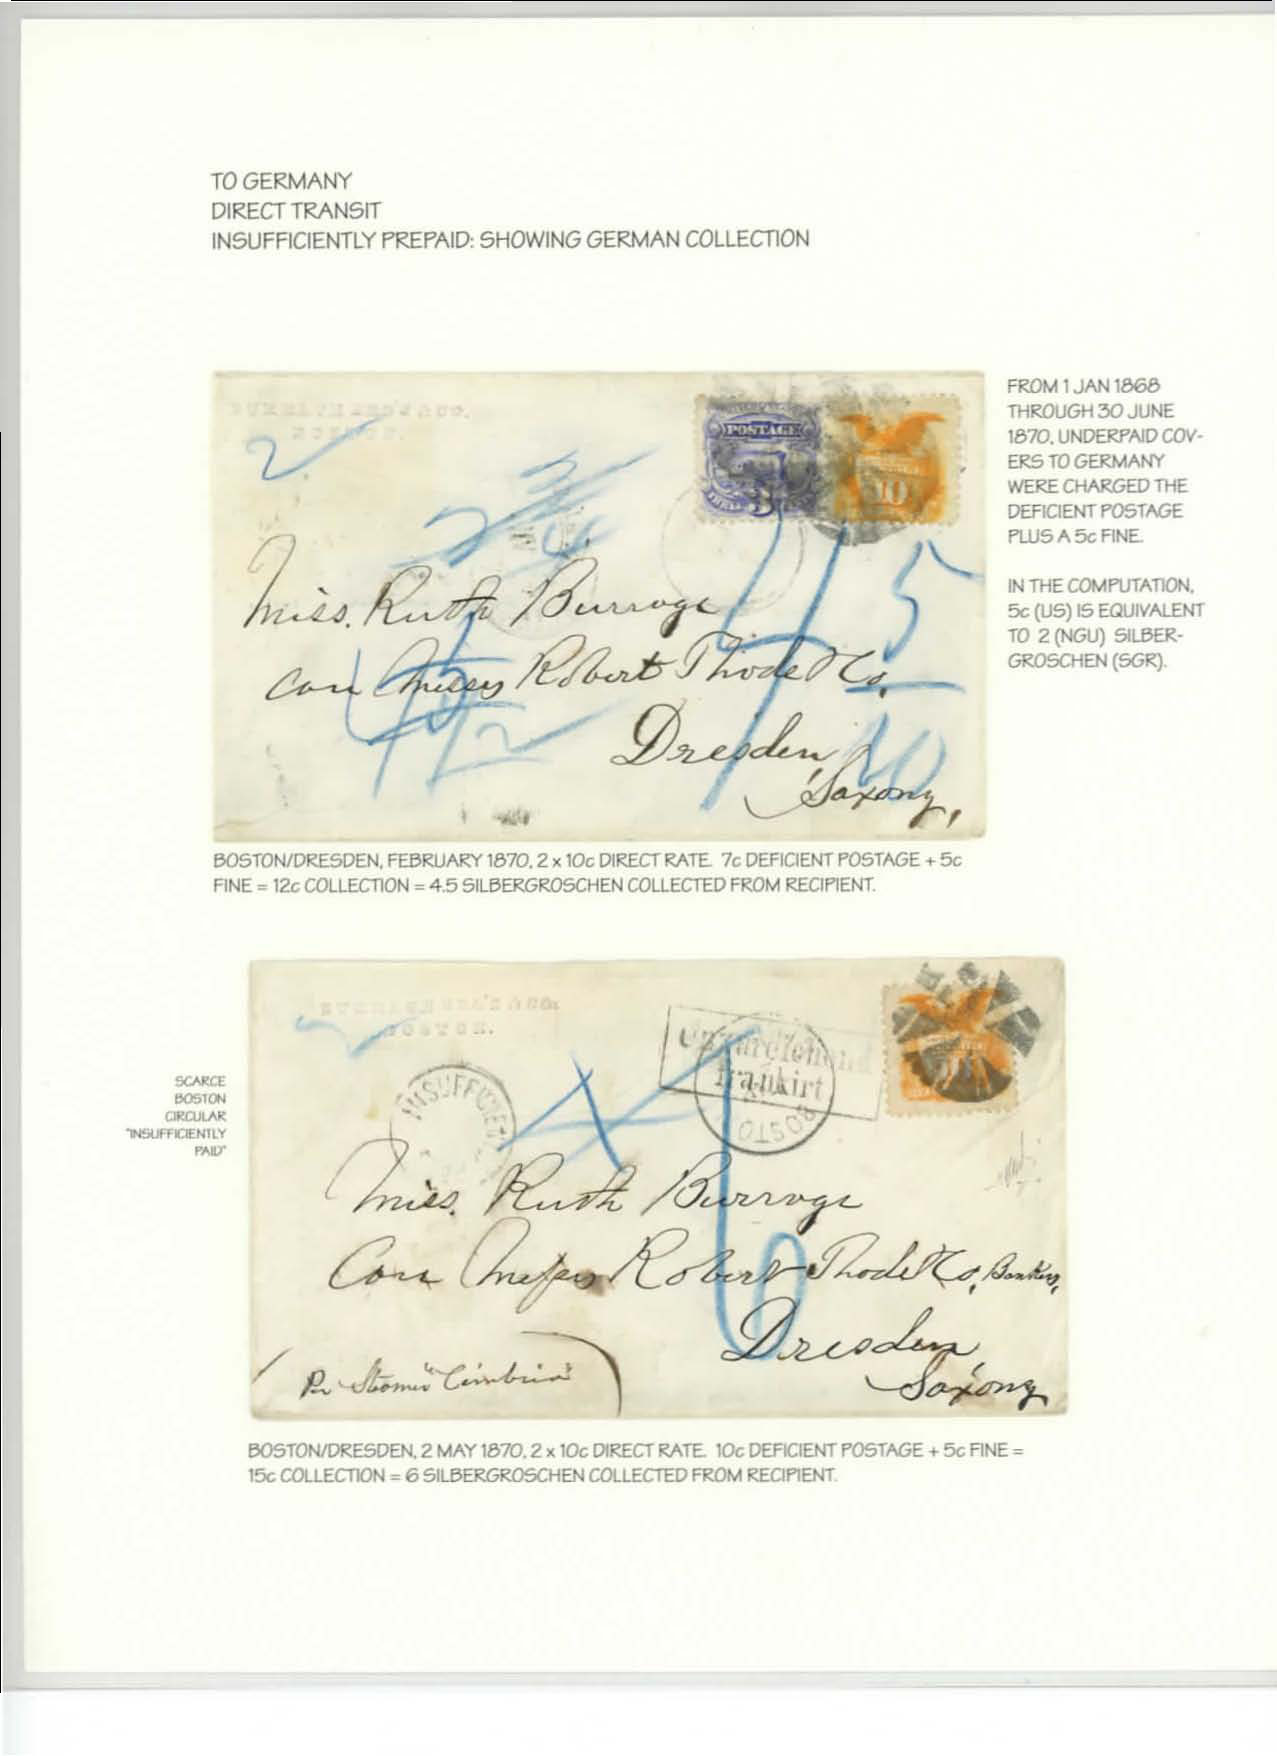 TO GERMANY
DIRECT TRANSIT
INSUFFICIENTLY PREPAID: SHOWING GERMAN COLLECTION
FROM 1 JAN 1868
THROUGH 30 JUNE
1870, UNDERPAID COV-
ERS TO GERMANY
WERE CHARGED THE
DEFICIENT POSTAGE
PLUS A 5c FINE.
IN THE COMPUTATION,
5c (US) IS EQUIVALENT
TO 2 (NGU) SILBER-
GROSCHEN (SGR).
BOSTON.
2
POSTAGE
3
10
Miss. Ruth Burrage
Care Messrs Robert Thode & Co.
Dresden
Saxony,
5
10
12
BOSTON/DRESDEN, FEBRUARY 1870, 2 x 10c DIRECT RATE. 7c DEFICIENT POSTAGE + 5c
FINE = 12c COLLECTION = 4.5 SILBERGROSCHEN COLLECTED FROM RECIPIENT.
BOSTON.
Unzureichend
frankirt
INSUFFICIENTLY
BOSTON
SCARCE
BOSTON
CIRCULAR
"INSUFFICIENTLY
PAID"
Miss. Ruth Burrage
Care Messrs Robert Thode & Co, Bankers,
Dresden
Saxony
6
Per Steamer "Cimbria"
BOSTON/DRESDEN, 2 MAY 1870, 2 x 10c DIRECT RATE. 10c DEFICIENT POSTAGE + 5c FINE =
15c COLLECTION = 6 SILBERGROSCHEN COLLECTED FROM RECIPIENT.